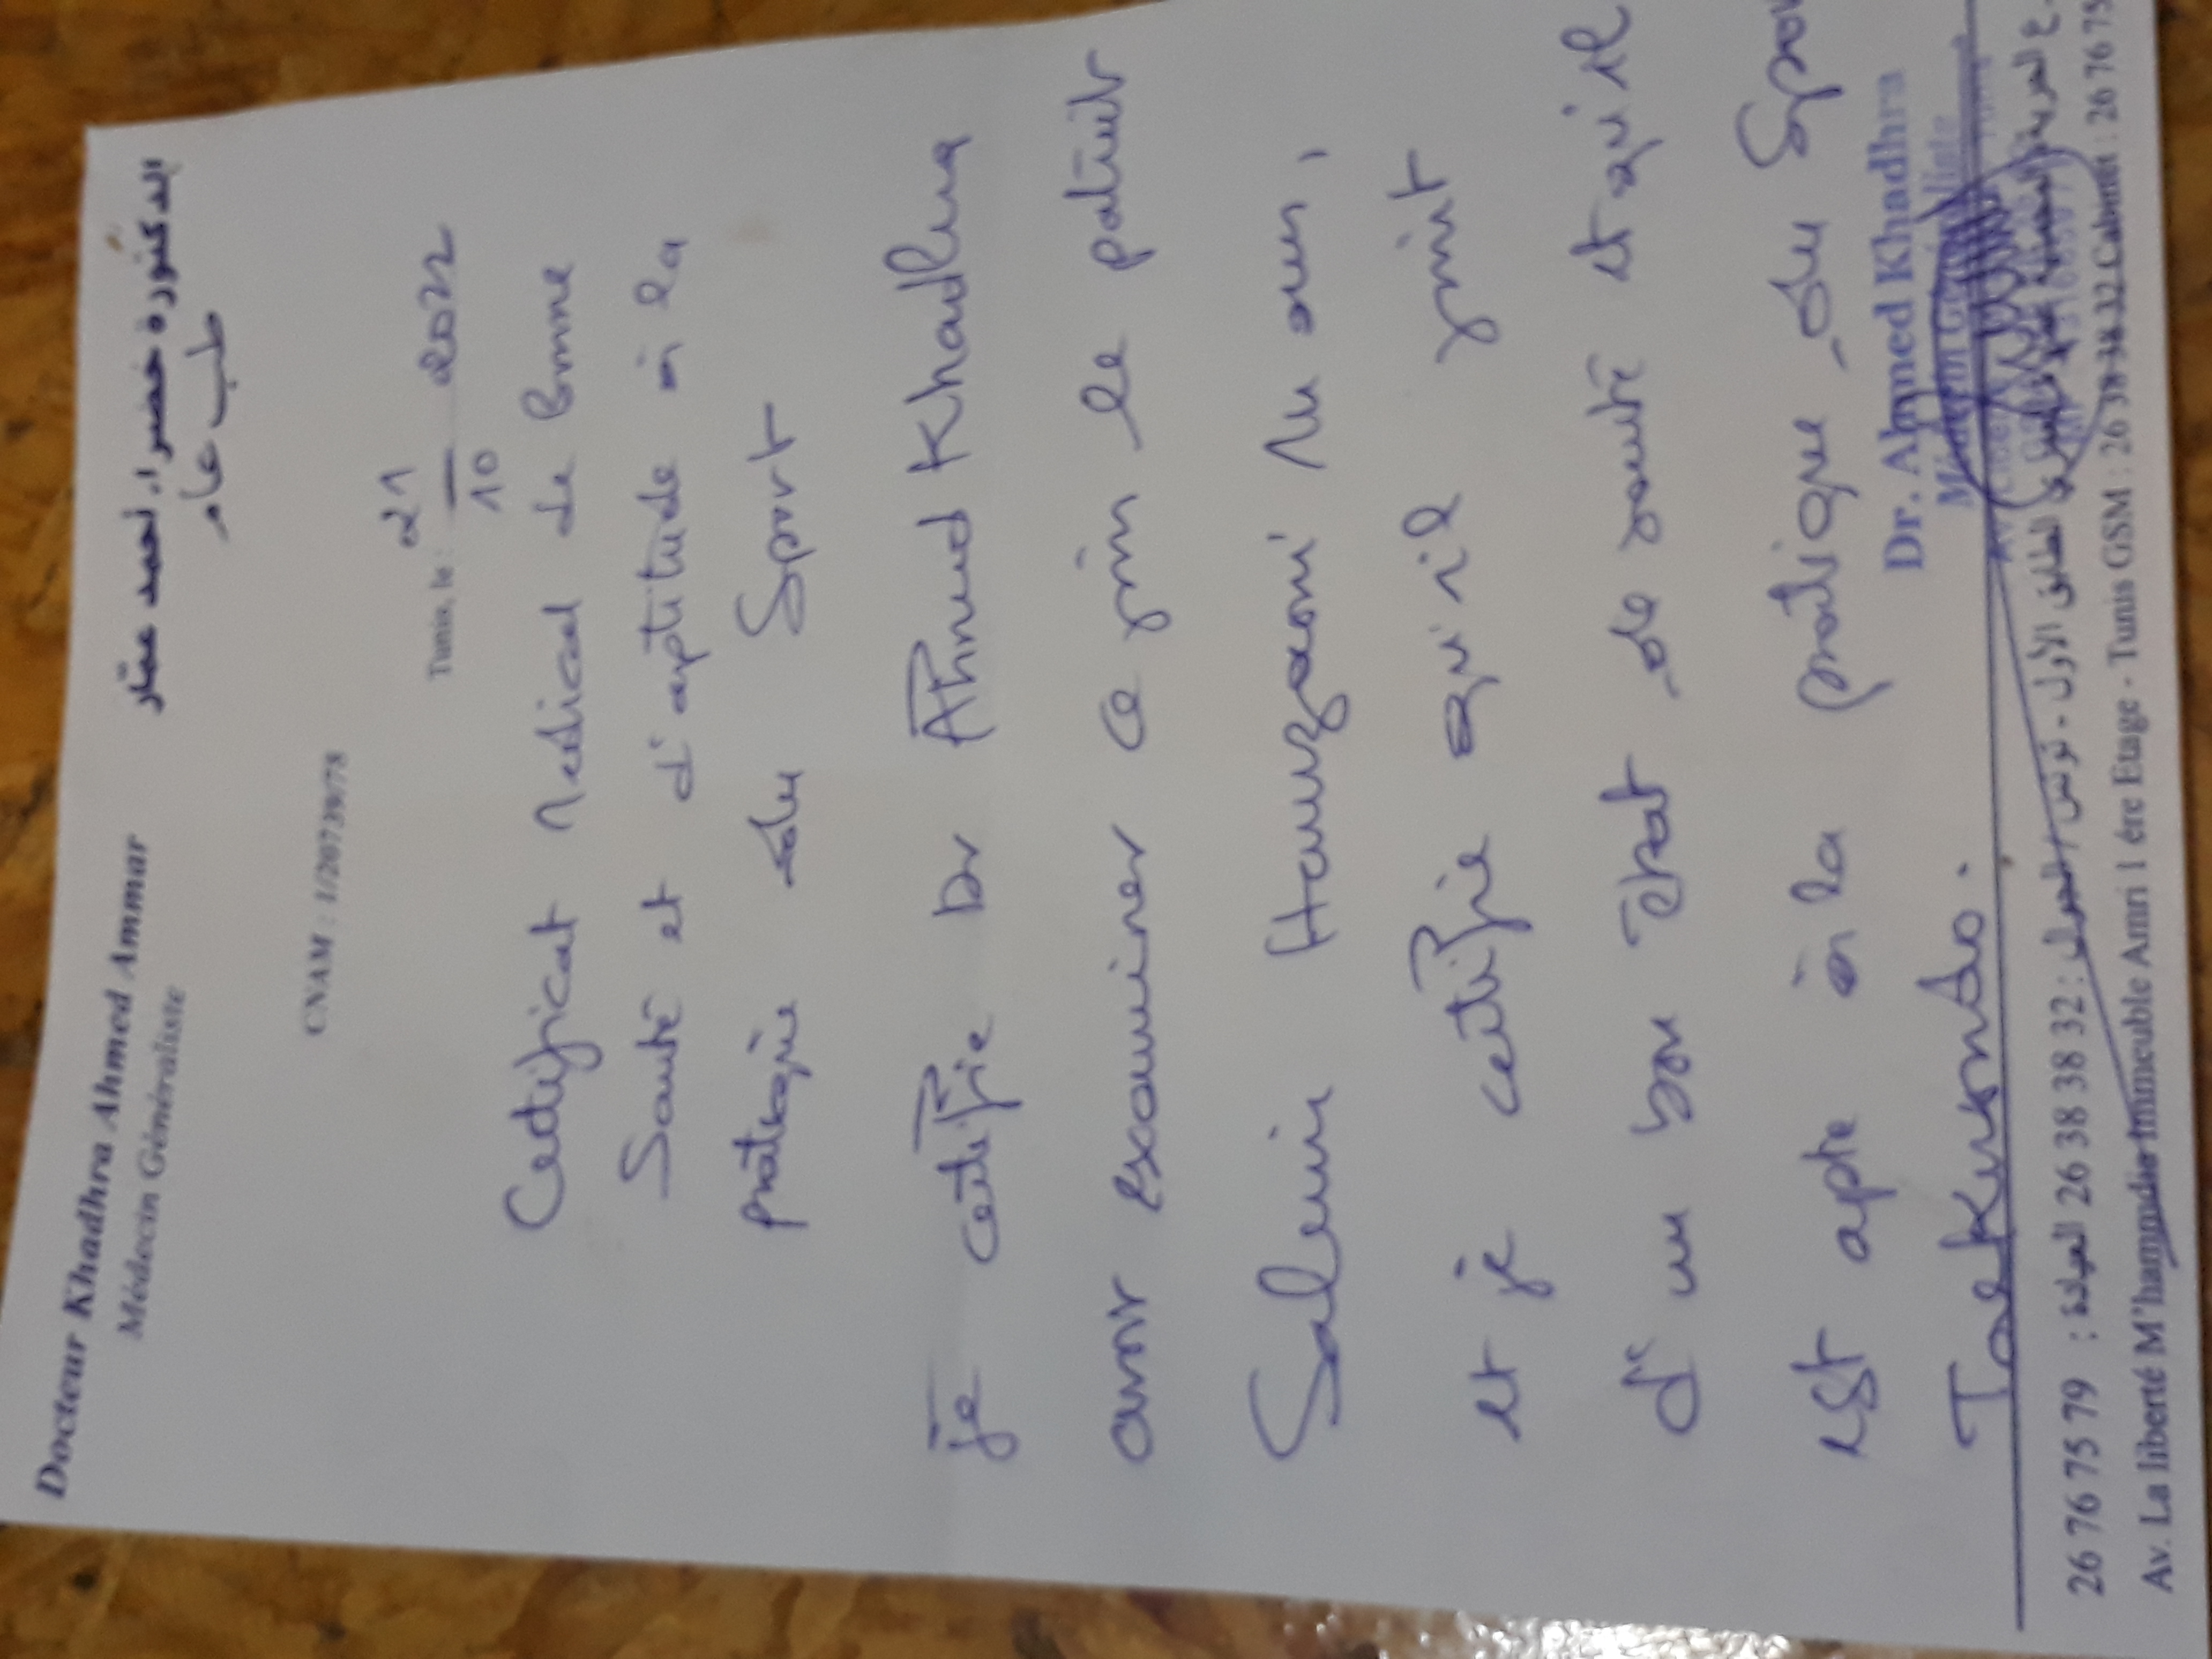 Docteur Khadhra Ahmed Ammar
الدكتورة خضراء احمد عمّار
Médecin Généraliste
طب عام
CNAM : 1/20739/78
Tunis, le : 21/10 2022
Certificat Medical de bonne
Santé et d'aptitude à la
pratique du Sport
je certifie Dr Ahmed Khadhra
avoir examiner ce jour le patient
Salmin
et je certifie qu'il jouit
d'un bon état de santé et qu'il
est apte à la pratique du Spor
Taekwondo.
Dr. Ahmed Khadhra
Médecin Généraliste
26 76 75 79 : العيادة 26 38 38 32 : الجوال
الطابق الأول - تونس
Av. La liberté M'hamdia Immeuble Amri 1 ére Etage - Tunis GSM : 26 38 38 32 Cabinet : 26 76 75